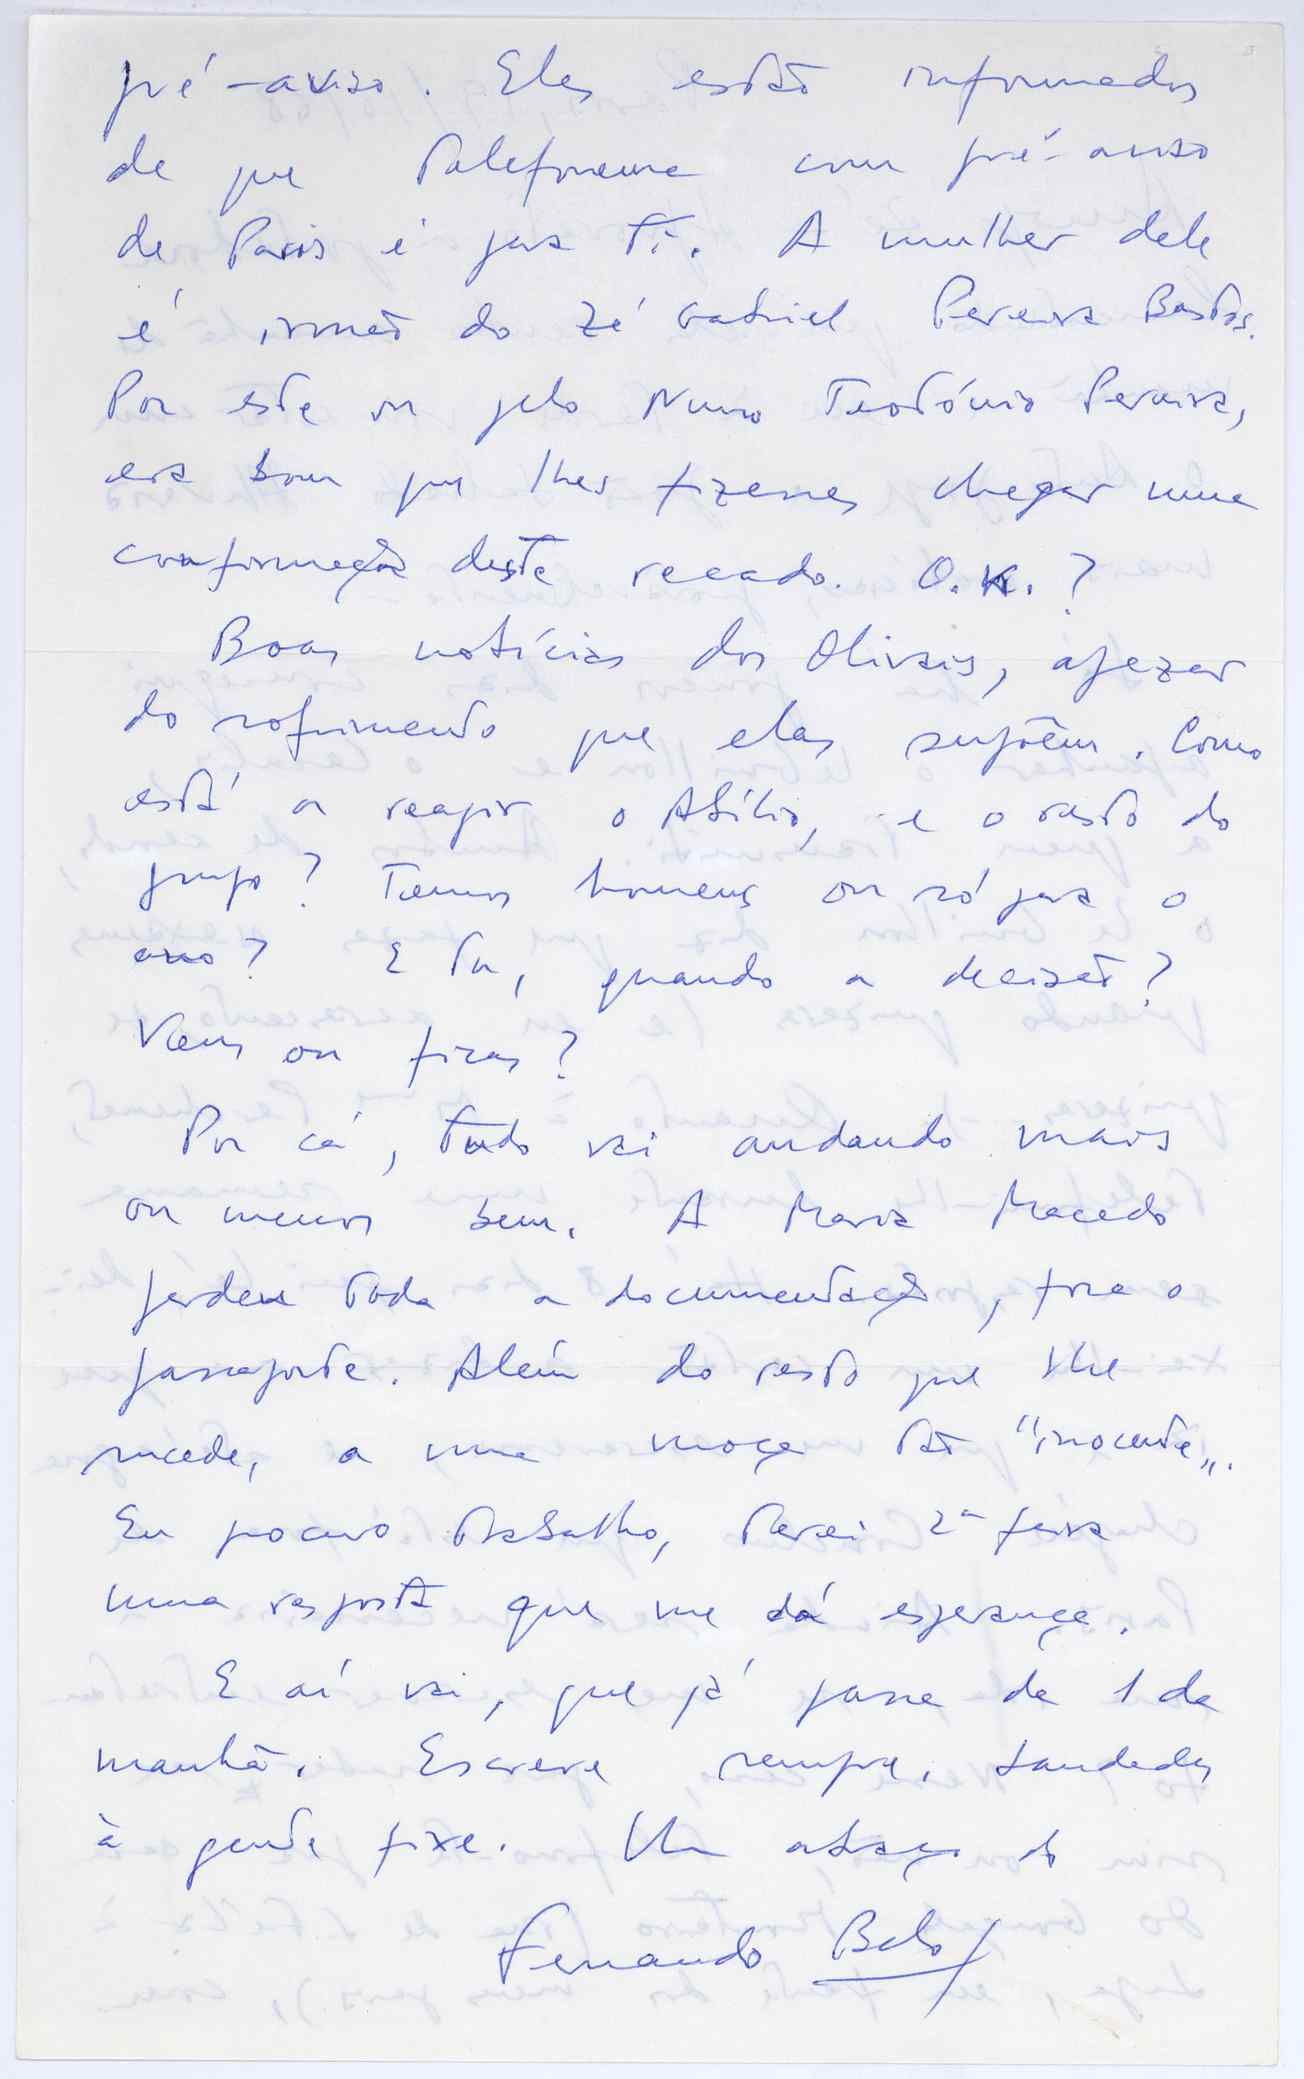 pré-aviso. Eles estão informados
de que telefonema com pré-aviso
de Paris é para ti. A mulher dele
é irmã do Zé Gabriel Pereira Bastos.
Por este ou pelo Nuno Teotónio Pereira,
era bom que lhes fizesses chegar uma
confirmação deste recado. O.K.?
Boas notícias dos Olivais, apezar
do sofrimento que elas supõem. Como
está a reagir o Abílio, e o resto do
grupo? Temos homens ou só para o
ano? E tu, quando a decisão?
Vens ou ficas?
Por cá, tudo vai andando mais
ou menos bem. A Maria Macedo
perdeu toda a documentação, fora o
passaporte. Além do resto que lhe
sucede, a uma moça tão "inocente".
Eu procuro trabalho, terei 2ª feira
uma resposta que me dá esperança.
E aí vai, que já passa da 1 da
manhã. Escreve sempre. Saudades
à gente fixe. Um abraço do
Fernando Belo